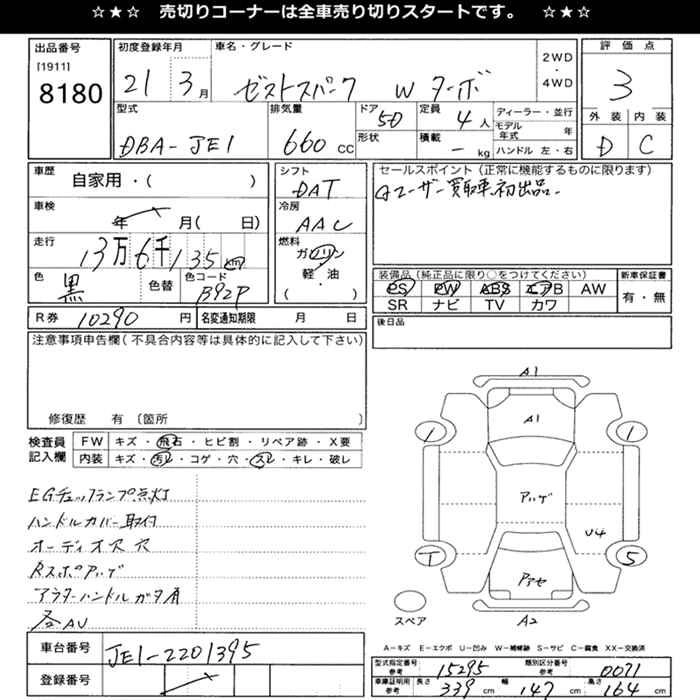 ☆★☆　売切りコーナーは全車売り切りスタートです。　☆★☆
出品番号
[1911]
8180
初度登録年月
21 3月
車名・グレード
ゼストスパーク W ターボ
2WD
・
4WD
評価点
3
外装 内装
D C
型式
DBA-JE1
排気量
660 cc
ドア
5D
形状
定員
4人
積載
- kg
ディーラー・並行
モデル年式 年
ハンドル 左・右
車歴
自家用・( )
車検
年 月( 日)
走行
13万6千135km
色
黒
色替
色コード
B92P
シフト
DAT
冷房
AAC
燃料
ガソリン
・
軽・油
( )
セールスポイント(正常に機能するものに限ります)
Aユーザー買取車初出品-
装備品(純正品に限り○をつけてください)
PS PW ABS エアB AW
SR ナビ TV カワ
新車保証書
有・無
R券 10290 円
名変通知期限 月 日
後日品
注意事項申告欄(不具合内容等は具体的に記入して下さい)
修復歴 有 〔箇所 〕
検査員記入欄
FW キズ・飛石・ヒビ割・リペア跡・X要
内装 キズ・汚レ・コゲ・穴・スレ・キレ・破レ
EGチェックランプ点灯
ハンドルカバー取付
オーディオ穴穴
Rスポアハゲ
アウターハンドルガタ有
各AU
A1
A1
1 1
アハゲ
U4
T 5
アアセ
A2
スペア
A－キズ E－エクボ U－凹み W－補修跡 S－サビ C－腐食 XX－交換済
車台番号
JE1-2201395
登録番号
型式指定番号
参考
15295
類別区分番号
参考
0071
車庫証明用
参考
長さ 339 cm 幅 147 cm 高さ 164 cm